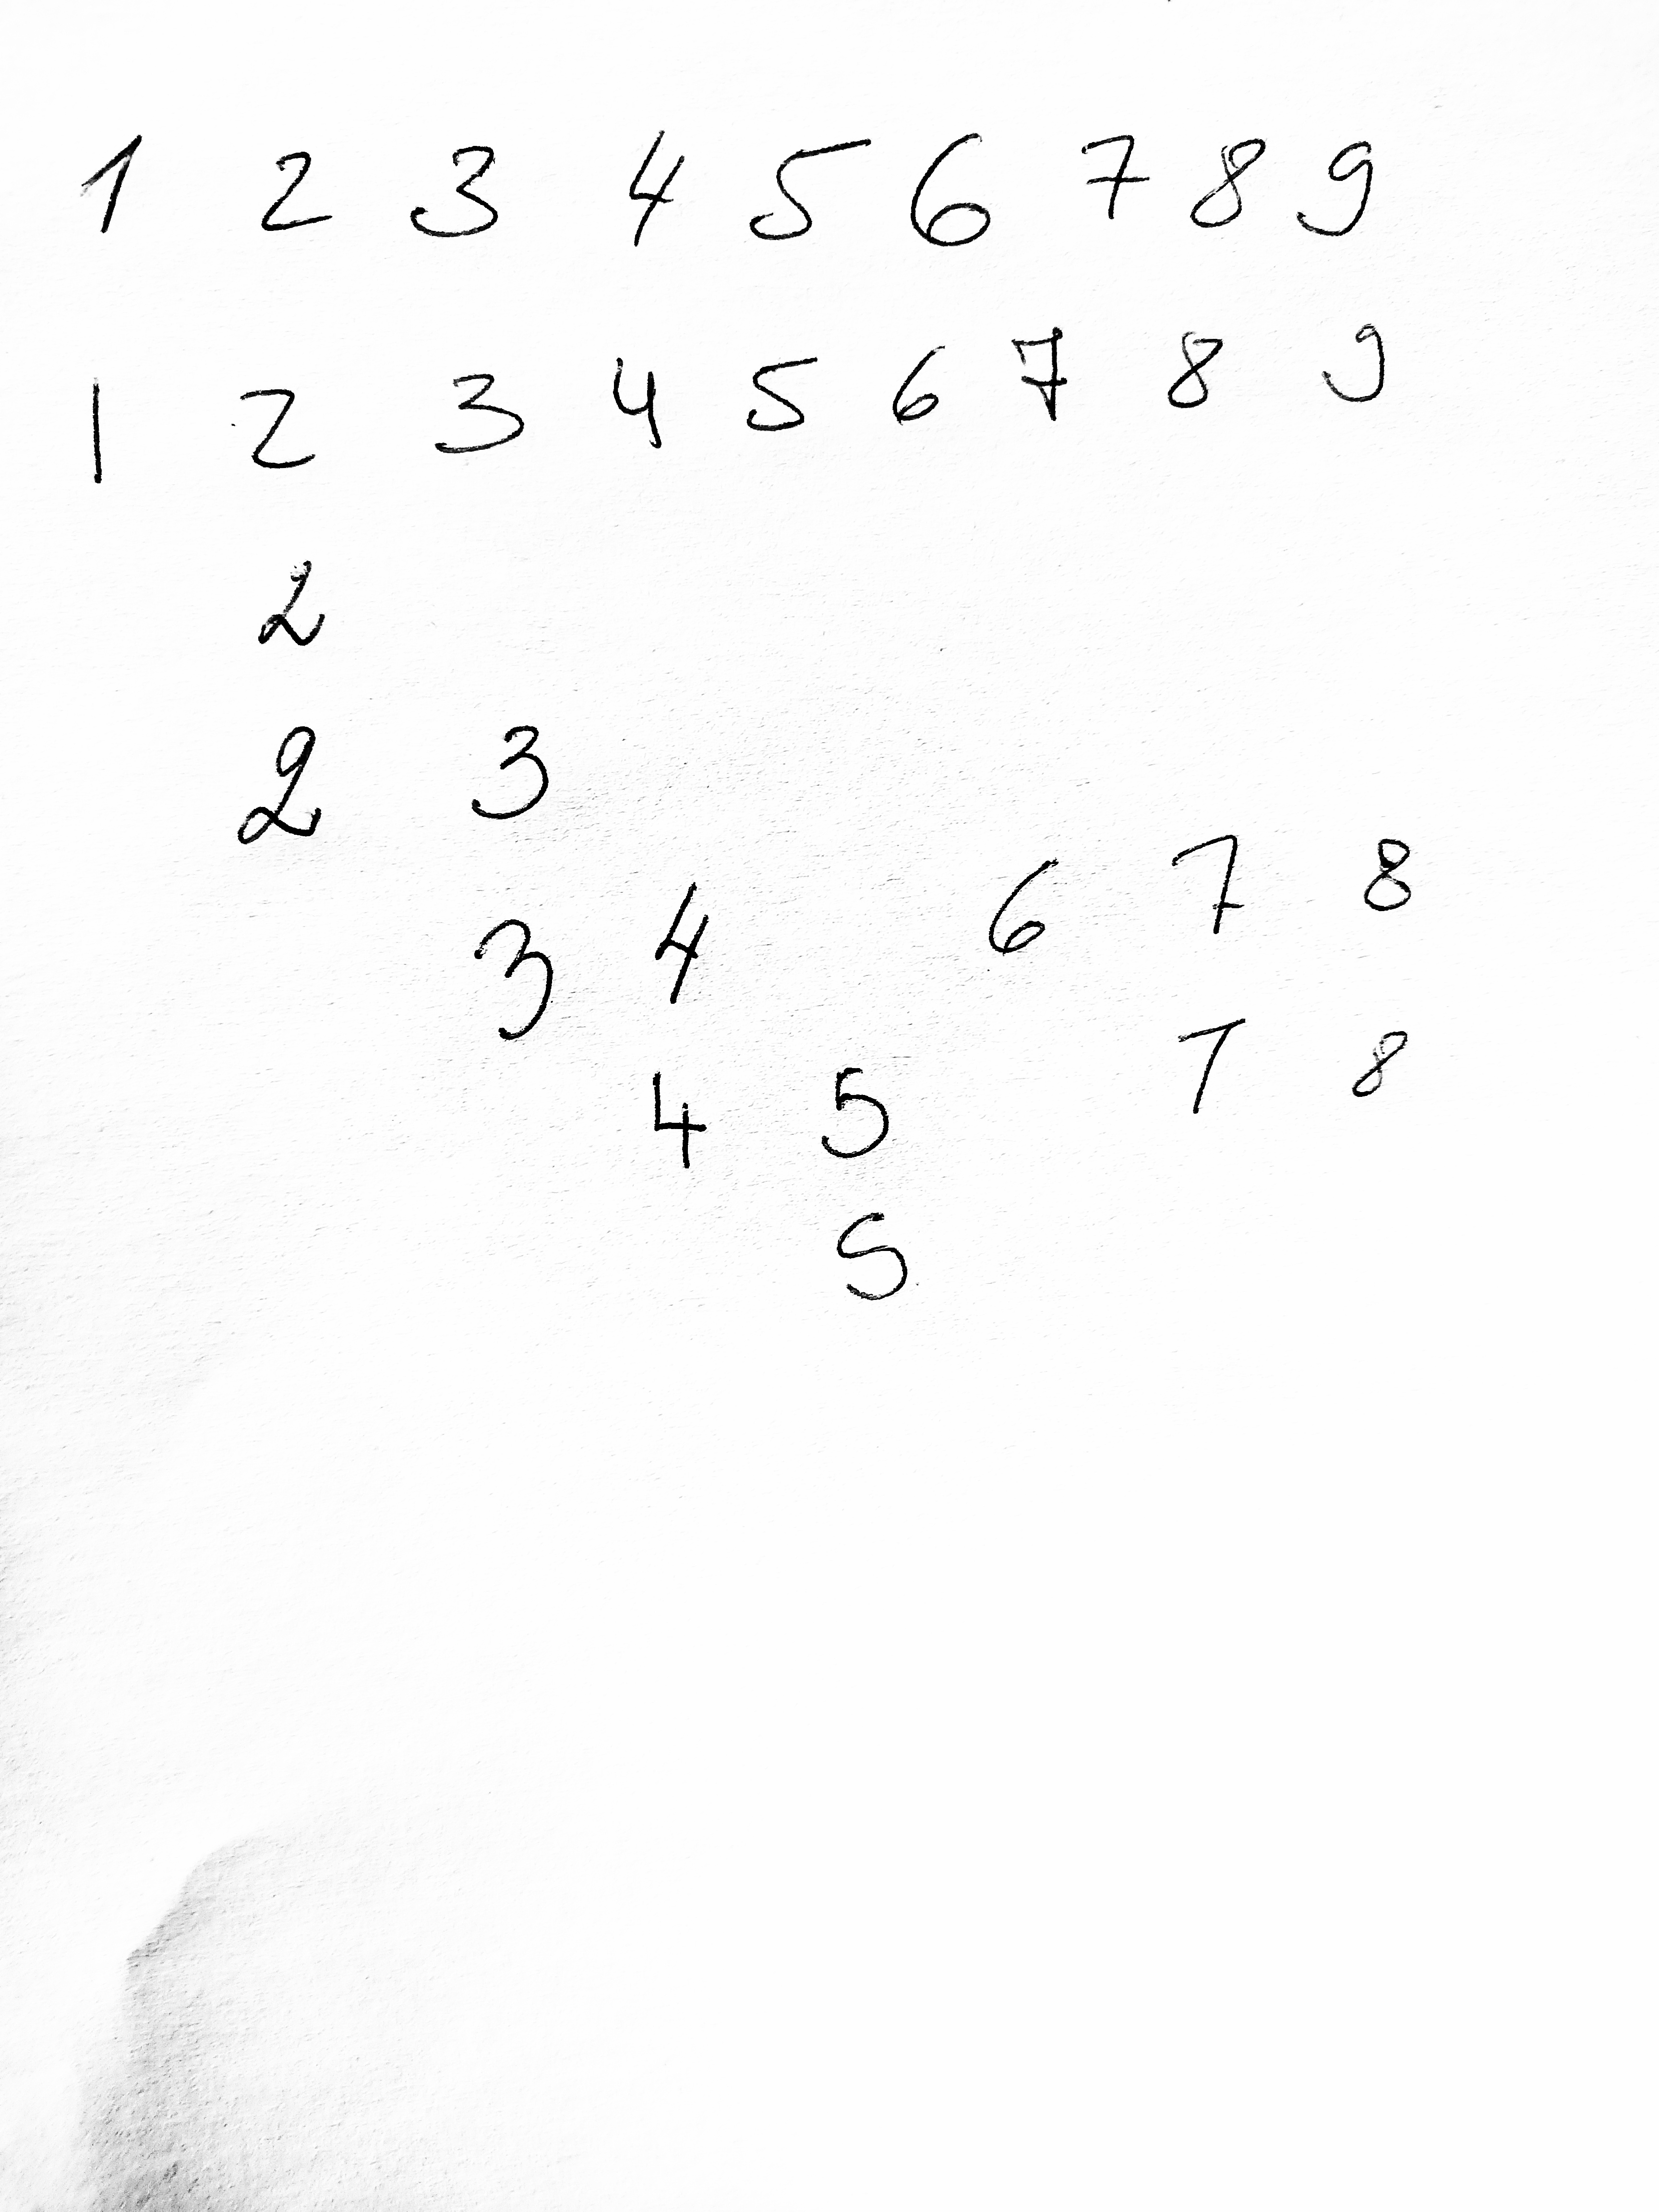 1 2 3 4 5 6 7 8 9
1 2 3 4 5 6 7 8 9
2
2 3
3 4 6 7 8
4 5 7 8
5